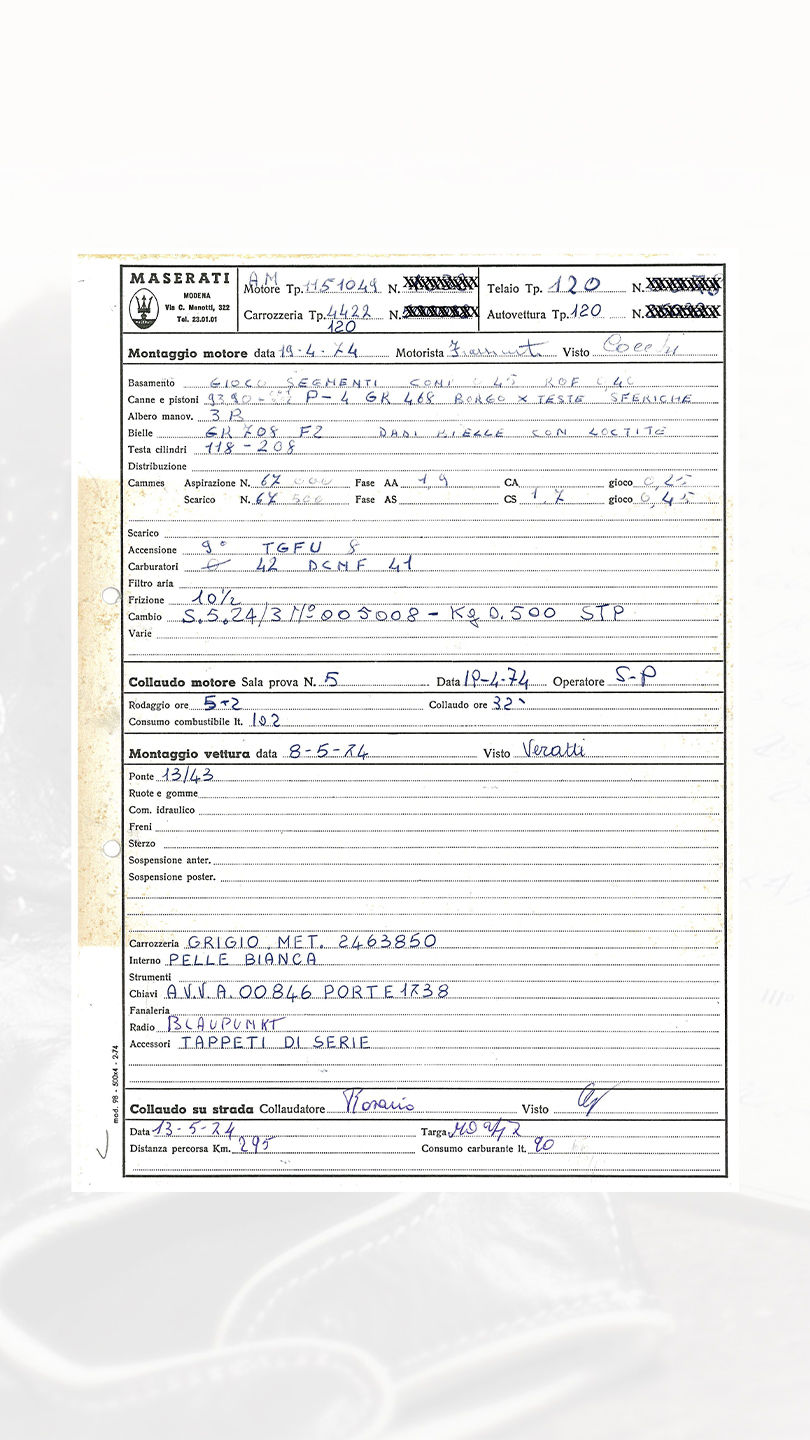 MASERATI
MODENA
Via C. Menotti, 322
Tel. 23.01.01
AM
Motore Tp. 1151049 N.
Carrozzeria Tp. 4422 N.
120
Telaio Tp. 120 N.
Autovettura Tp. 120 N.
Montaggio motore data 19-4-74 Motorista Visto
Basamento GIOCO SEGMENTI
Canne e pistoni P-4 GR 468 BORGO X TESTE SFERICHE
Albero manov. 3 B
Bielle GR 708 F2 DADI BIELLE CON LOCTITE
Testa cilindri 118-208
Distribuzione
Cammes Aspirazione N. 67 000 Fase AA 19 CA gioco 0,25
Scarico N. 67 500 Fase AS CS 1,7 gioco 0,45
Scarico
Accensione 9° TGFU 8
Carburatori 42 DCNF 41
Filtro aria
Frizione 10½
Cambio S.5.24/3 N° 005008 - Kg 0.500 STP
Varie
Collaudo motore Sala prova N. 5 Data 19-4-74 Operatore S-P
Rodaggio ore 5+2 Collaudo ore
Consumo combustibile lt. 102
Montaggio vettura data 8-5-74 Visto Veratti
Ponte 13/43
Ruote e gomme
Com. idraulico
Freni
Sterzo
Sospensione anter.
Sospensione poster.
Carrozzeria GRIGIO MET. 2463850
Interno PELLE BIANCA
Strumenti
Chiavi A.V.V.A. 00846 PORTE 1738
Fanaleria
Radio BLAUPUNKT
Accessori TAPPETI DI SERIE
Collaudo su strada Collaudatore Rosario Visto
Data 13-5-74 Targa MO
Distanza percorsa Km. 295 Consumo carburante lt. 90
mod. 98 - 500x4 - 2-74